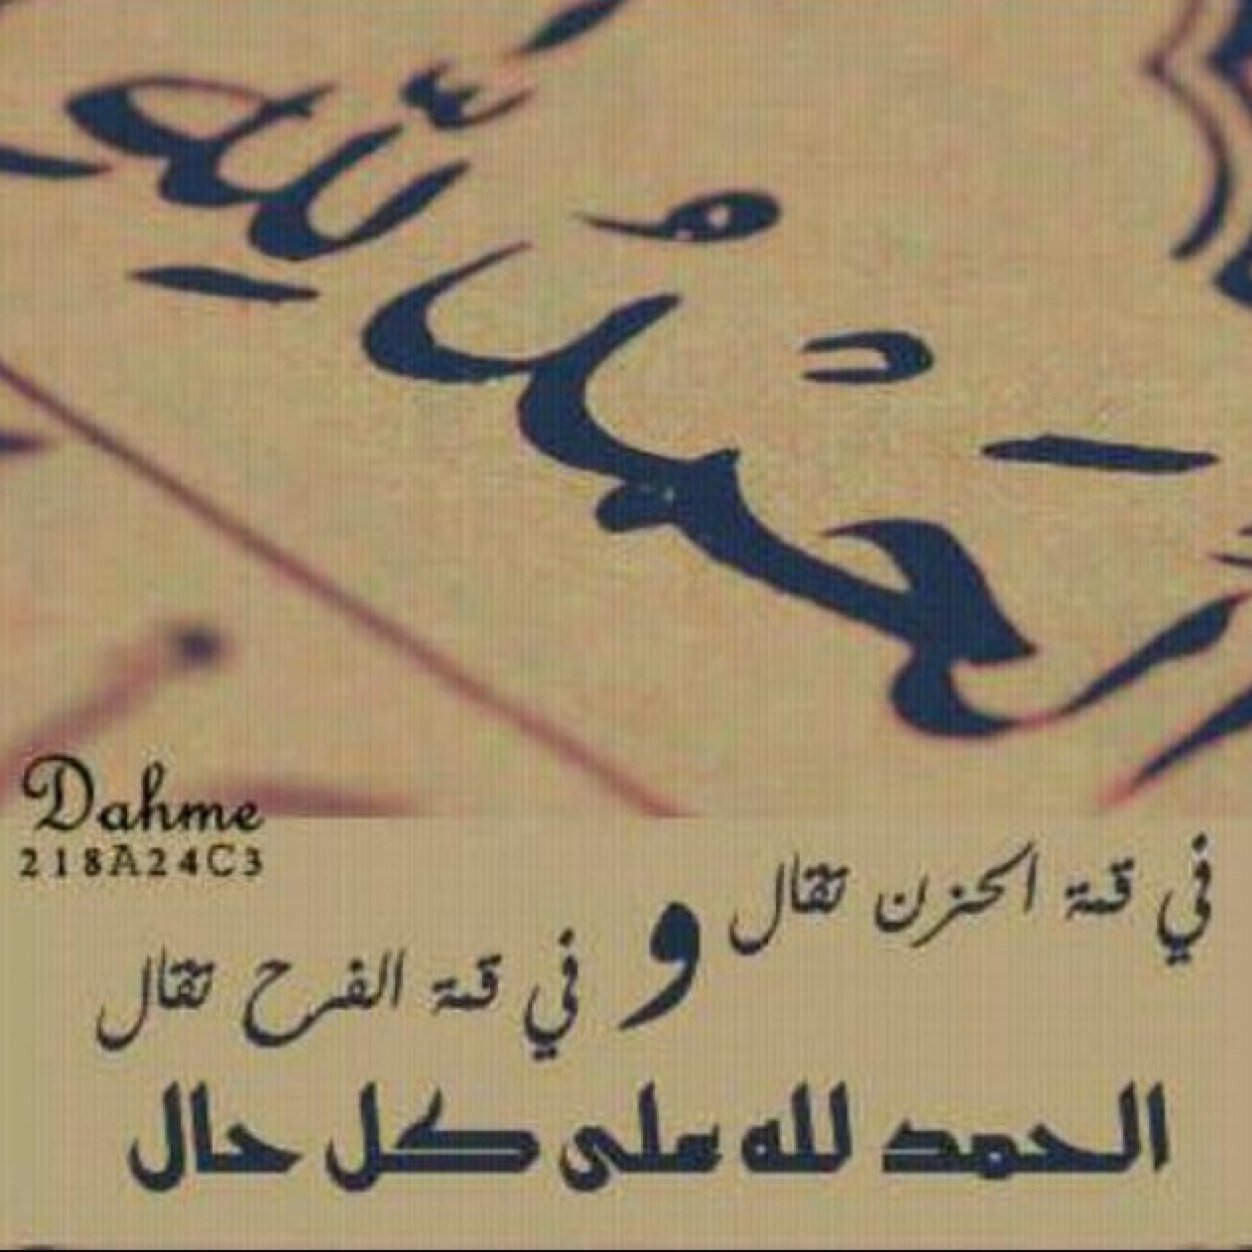 الحمد لله
Dahme
218A24C3
في قمة الحزن تقال
و
في قمة الفرح تقال
الحمد لله على كل حال